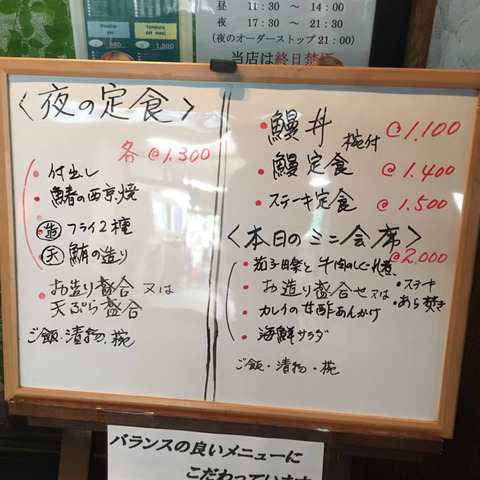 Noodles
set
880
Tempura
set meal
1,800
昼 11:30 ～ 14:00
夜 17:30 ～ 21:30
(夜のオーダーストップ 21:00)
当店は終日禁煙
〈夜の定食〉
各@1.300
・付出し
・鯖の西京焼
造 フライ2種
天 鮪の造り
・お造り盛合 又は
天ぷら盛合
ご飯・漬物・椀
・鰻丼 椀付 @1.100
・鰻定食 @1.400
・ステーキ定食 @1.500
〈本日のミニ会席〉
@2,000
・茄子田楽と牛肉のしぐれ煮
・お造り盛合せ又は ・ステーキ
・あら焚き
・カレイの甘酢あんかけ
・海鮮サラダ
ご飯・漬物・椀
バランスの良いメニューに
こだわっています